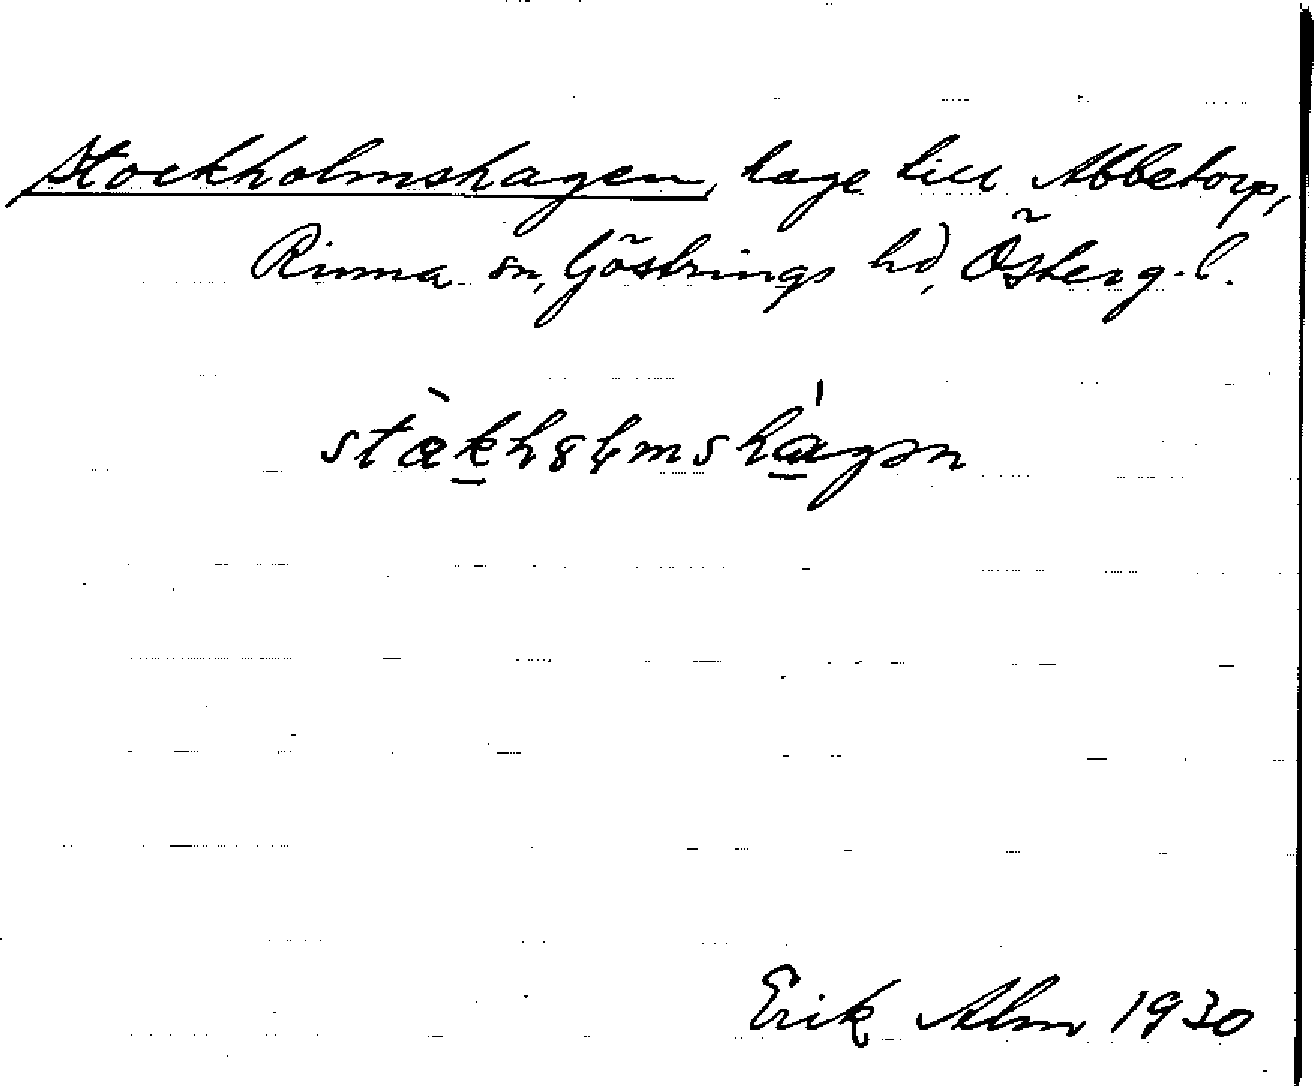 Stockholmshagen, hage till Abbetorp,
Rinna sn, Göstrings hd, Österg. l.
stæ̀kh8ɫmshágən
Erik Alm 1930